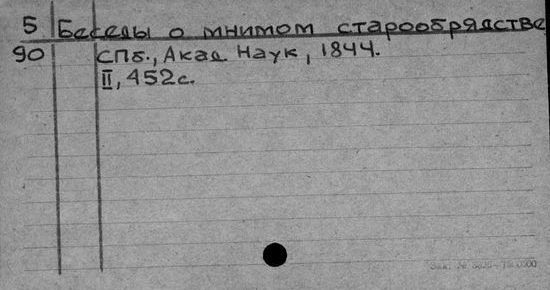 5 Беседы о мнимом старообрядстве
90 СПб., Акад Наук, 1844.
II, 452с.